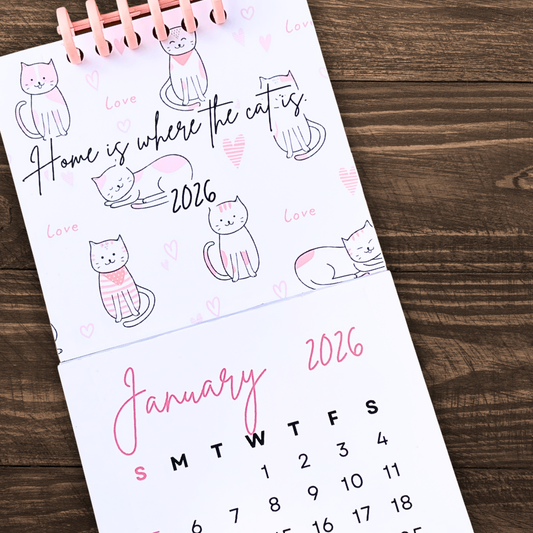 Love
Home is where the cat is.
2026
Love
Love
January 2026
S M T W T F S
1 2 3 4
6 7 8 9 10 11
15 16 17 18